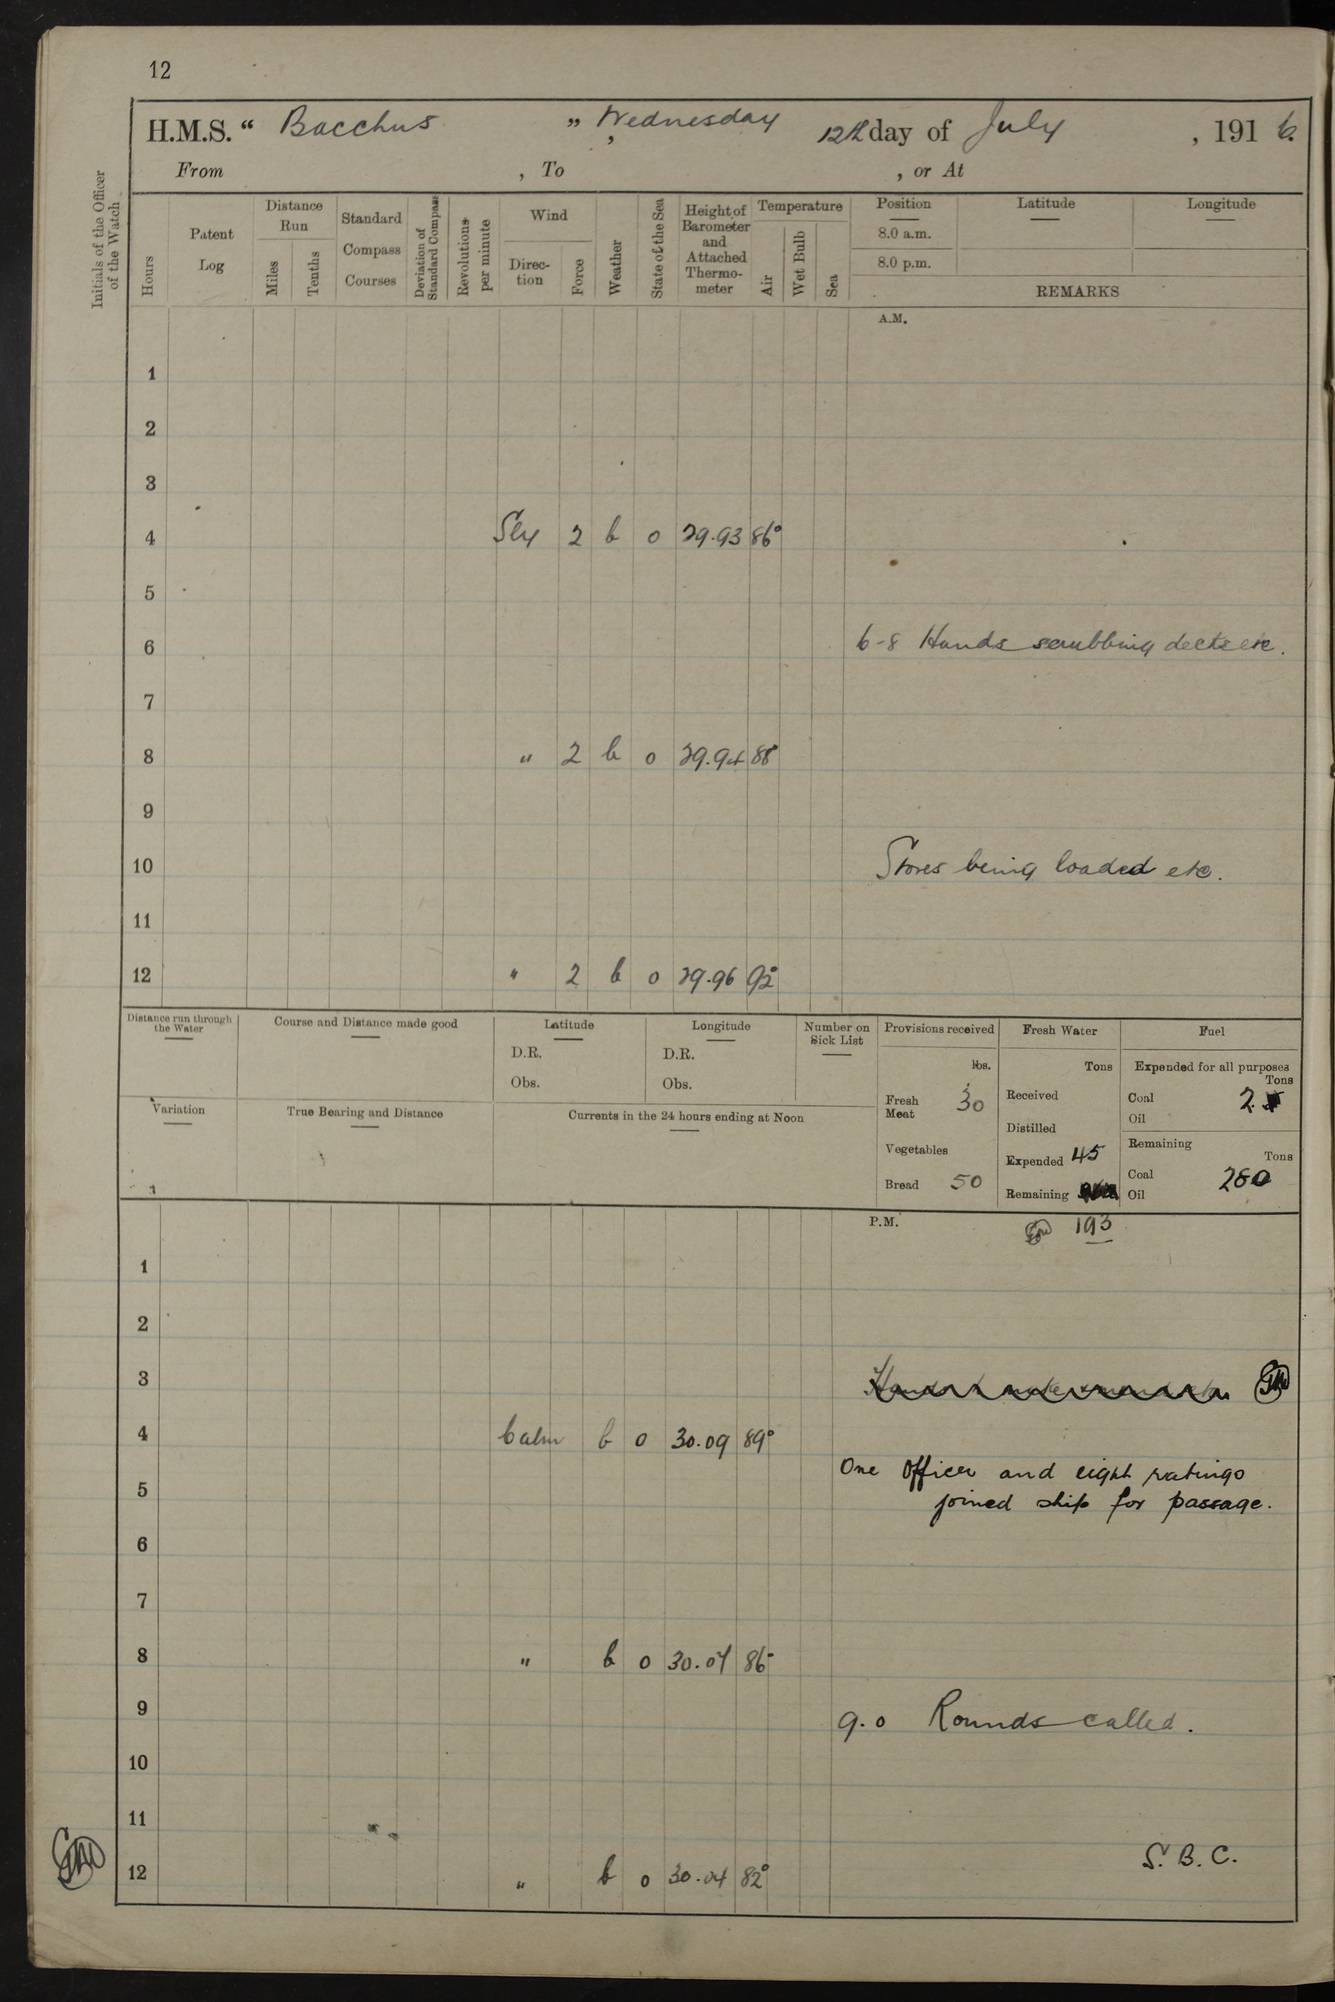 12
H.M.S. " Bacchus " Wednesday, 12th day of July, 1916.
From , To , or At
Initials of the Officer of the Watch
Hours
Patent Log
Distance Run
Miles
Tenths
Standard Compass Courses
Deviation of Standard Compass
Revolutions per minute
Wind
Direc-tion
Force
Weather
State of the Sea
Height of Barometer and Attached Thermo-meter
Temperature
Air
Wet Bulb
Sea
Position
8.0 a.m.
8.0 p.m.
Latitude
Longitude
REMARKS
A.M.
1
2
3
4 Sly 2 b 0 29.93 86°
5
6 6-8 Hands scrubbing decks etc.
7
8 " 2 b 0 29.94 88°
9
10 Stores being loaded etc.
11
12 " 2 b 0 29.96 92°
Distance run through the Water
Course and Distance made good
Latitude
D.R.
Obs.
Longitude
D.R.
Obs.
Number on Sick List
Variation
True Bearing and Distance
Currents in the 24 hours ending at Noon
Provisions received
lbs.
Fresh Meat 30
Vegetables
Bread 50
Fresh Water
Tons
Received
Distilled
Expended 45
Remaining
193
Fuel
Expended for all purposes
Tons
Coal 2
Oil
Remaining
Tons
Coal 280
Oil
P.M.
1
2
3
4 Calm b 0 30.09 89°
One officer and eight ratings
5 joined ship for passage.
6
7
8 " b 0 86°
9 9.0 Rounds called.
10
11
S.B.C.
12 " b 0 30.04 82°